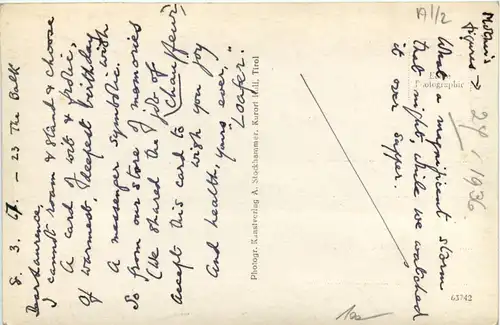 8. 3. 67. – 23 The Balk
Dear Laurence,
I cannot roam & stand & choose
A card of wit & poetic,
Of warmest, deepest birthday
A messenger symbolic.
So from our store of memories
(We shared the job of Chauffeur)
Accept this card to wish
with you joy
And health, yours ever,
"Loafer."
Photogr. Kunstverlag A. Stockhammer. Kurort Hall, Tirol
Mother's
figures →
19 1/2
27 / 1936
What a magnificent storm
that night, while we watched
it over supper.
Photographic
63742